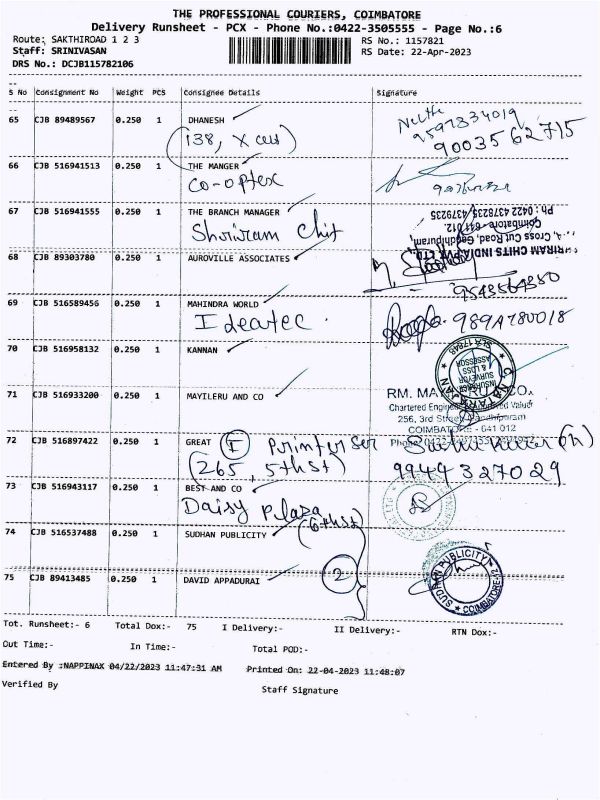 THE PROFESSIONAL COURIERS, COIMBATORE
Delivery Runsheet - PCX - Phone No.:0422-3505555 - Page No.:6
Route: SAKTHIROAD 1 2 3 RS No.: 1157821
Staff: SRINIVASAN RS Date: 22-Apr-2023
DRS No.: DCJB115782106
S No Consignment No Weight PCS Consignee Details Signature
65 CJB 89489567 0.250 1 DHANESH
(138, X cut) 9003562715
66 CJB 516941513 0.250 1 THE MANGER
Co-optex
67 CJB 516941555 0.250 1 THE BRANCH MANAGER
Shriram Chit
Ph : 0422 4379235, 4379235
Coimbatore - 641 012.
Cross Cut Road, Gandhipuram,
SHRIRAM CHITS INDIA PVT. LTD.
68 CJB 89303780 0.250 1 AUROVILLE ASSOCIATES
69 CJB 516589456 0.250 1 MAHINDRA WORLD
Ideatec.
70 CJB 516958132 0.250 1 KANNAN
INSURANCE
SURVEYOR
& LOSS
ASSESSOR
71 CJB 516933200 0.250 1 MAYILERU AND CO
Chartered Engineer
256, 3rd Street, Gandhipuram
COIMBATORE - 641 012
72 CJB 516897422 0.250 1 GREAT I Printer Ser
(265 5th St) 9944327029
73 CJB 516943117 0.250 1 BEST AND CO
Daisy Plaza
(6th St)
74 CJB 516537488 0.250 1 SUDHAN PUBLICITY
75 CJB 89413485 0.250 1 DAVID APPADURAI 2
SUDHAN PUBLICITY
COIMBATORE-12
Tot. Runsheet:- 6 Total Dox:- 75 I Delivery:- II Delivery:- RTN Dox:-
Out Time:- In Time:- Total POD:-
Entered By :NAPPINAX 04/22/2023 11:47:31 AM Printed On: 22-04-2023 11:48:07
Verified By Staff Signature